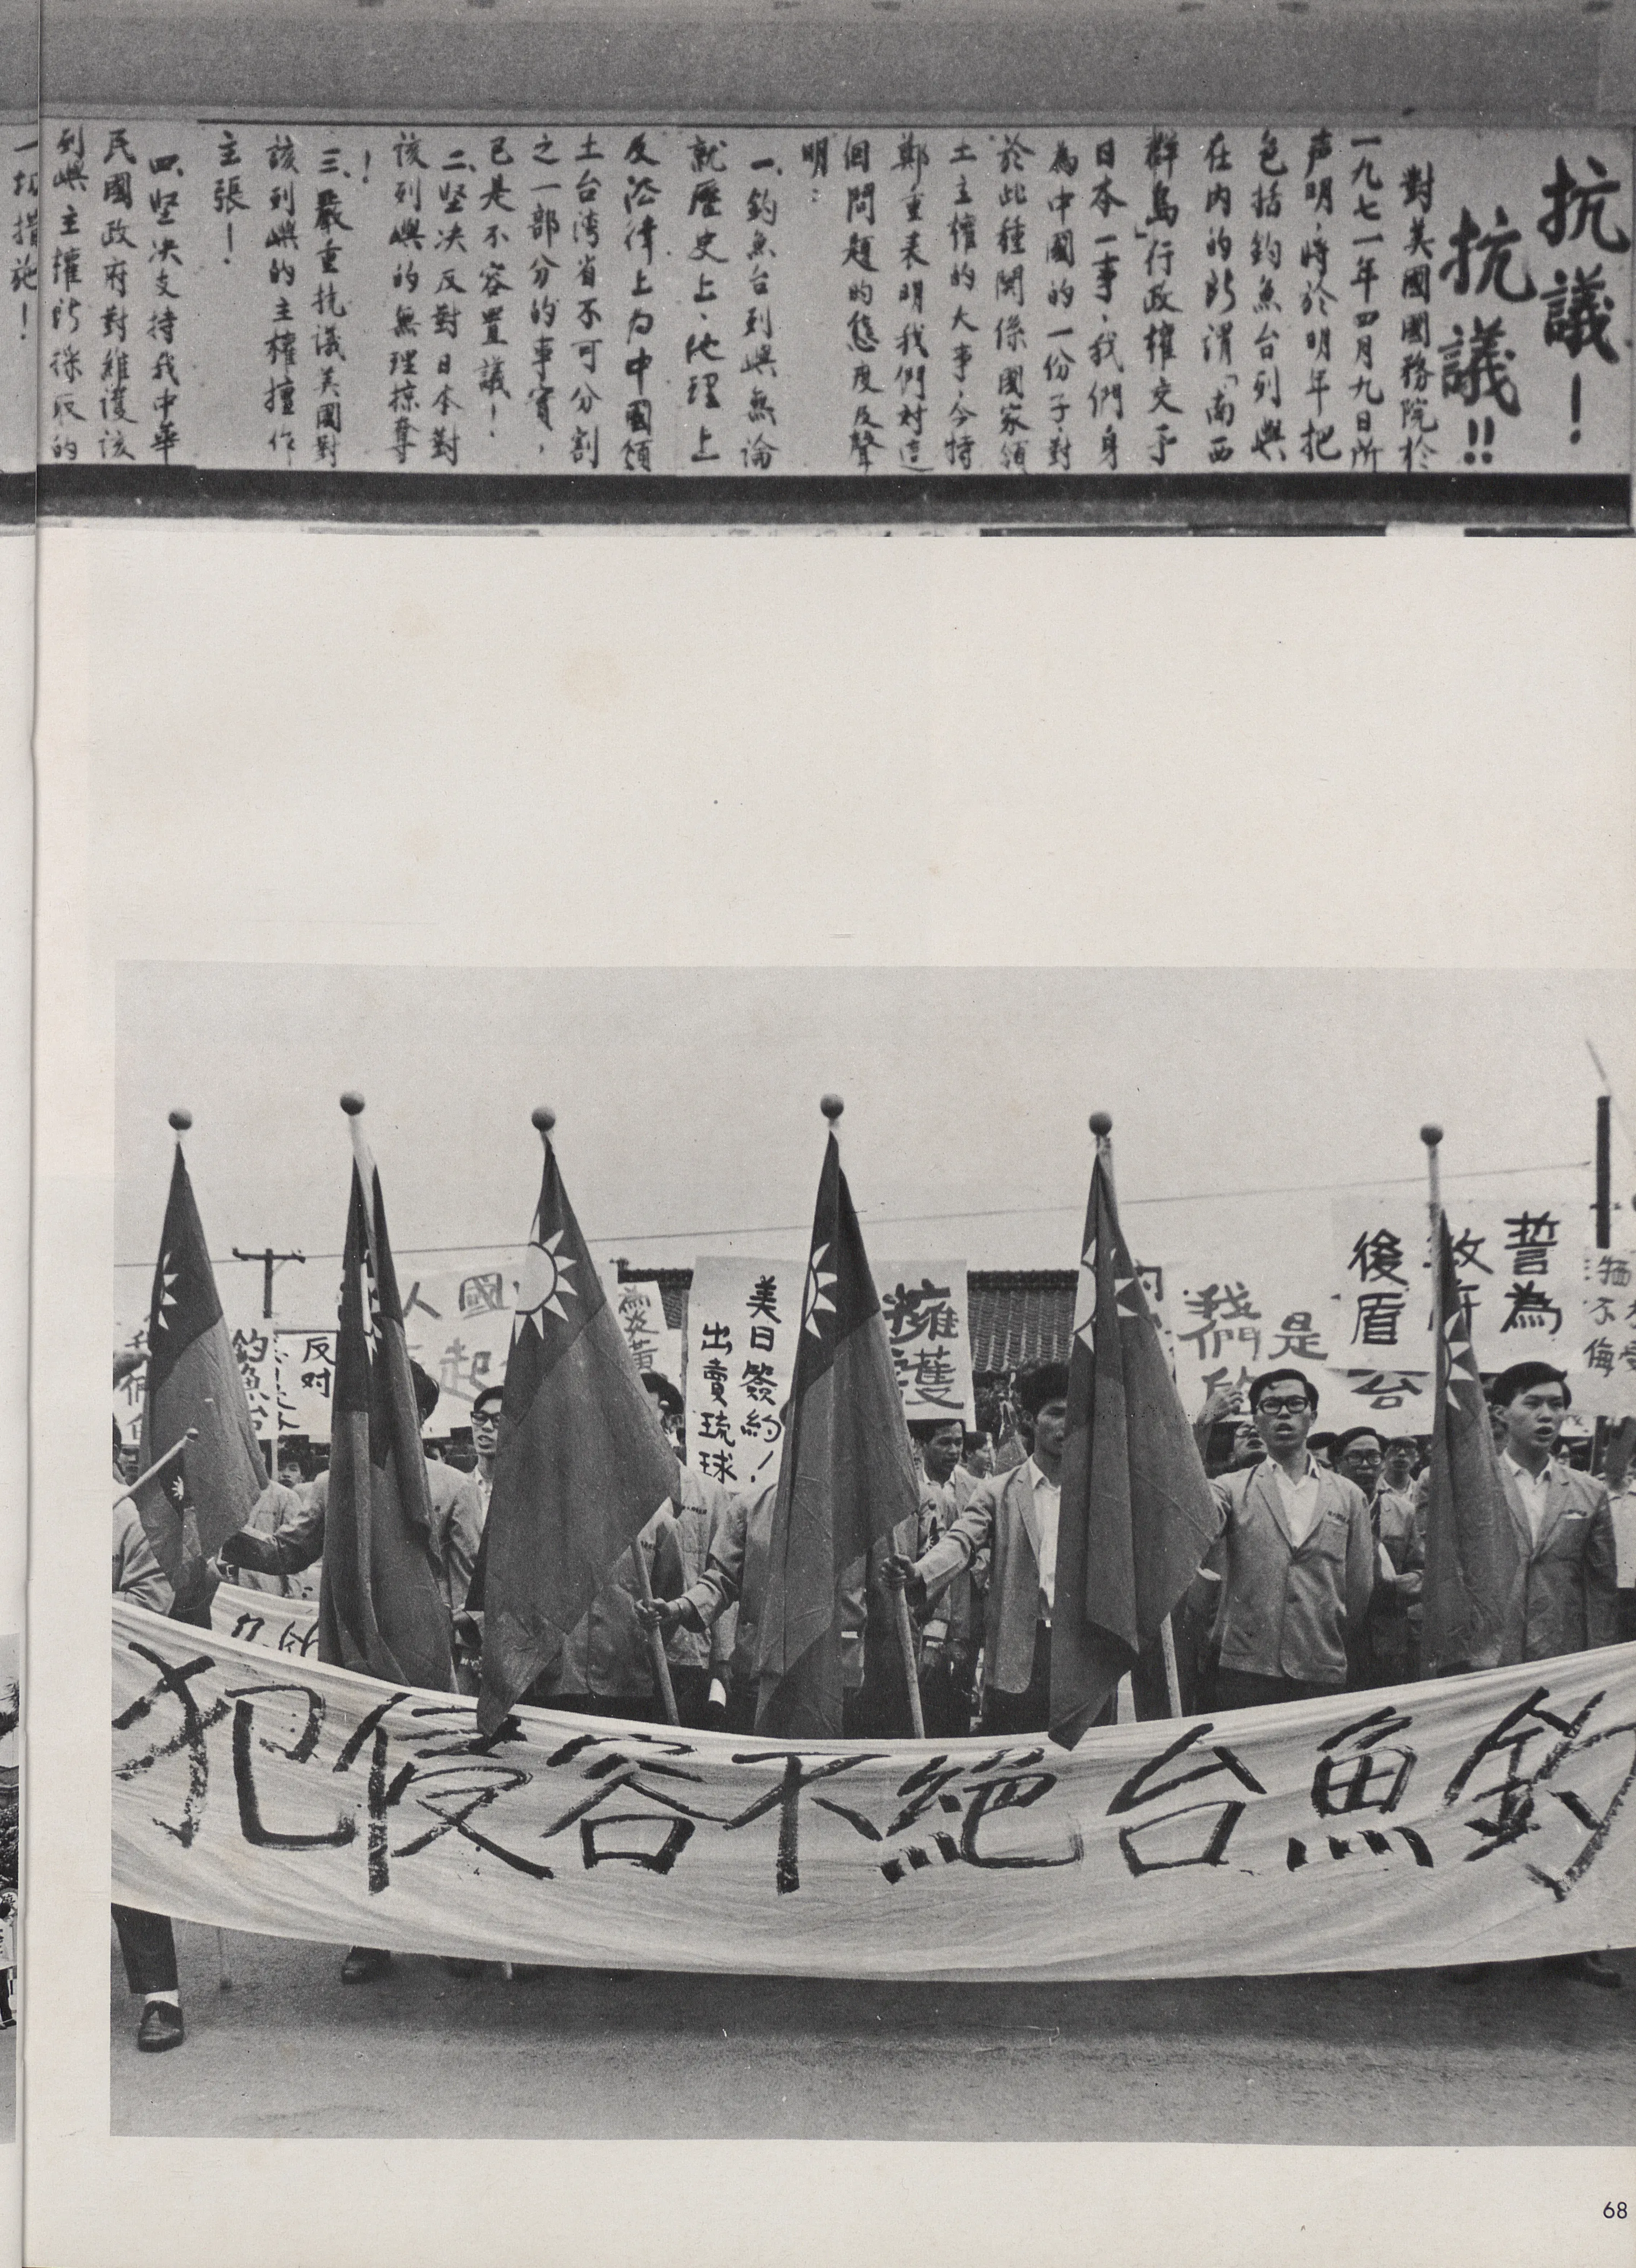 抗議！
抗議!!
對美國國務院於
一九七一年四月九日所
声明，將於明年把
包括釣魚台列嶼
在内的所謂「南西
群島」行政權交予
日本一事，我們身
為中國的一份子，對
於此種関係國家領
土主權的大事，今特
鄭重表明我們对這
個問題的態度及聲
明：
一、釣魚台列嶼無論
就歷史上、地理上
及法律上为中國領
土台湾省不可分割
之一部分的事實，
已是不容置議！
二、堅决反對日本對
該列嶼的無理掠奪
！
三、嚴重抗議美國對
該列嶼的主權擅作
主張！
四、堅决支持我中華
民國政府對維護該
列嶼主權所採取的
一切措施！
誓為
政府
後盾
是
我們
擁護
美日簽約！
出賣琉球
人國
起
反对
釣魚台
犯侵容不絕台魚釣
68